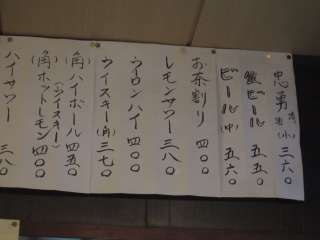 忠勇 志(小) 三六〇
生ビール 五五〇
ビール(中) 五六〇
お茶割り 四〇〇
レモンサワー 三八〇
ウーロンハイ 四〇〇
ウイスキー(角) 三七〇
角ハイボール 四五〇
(ウイスキー)
角ホットレモン 四〇〇
ハイサワー 三八〇